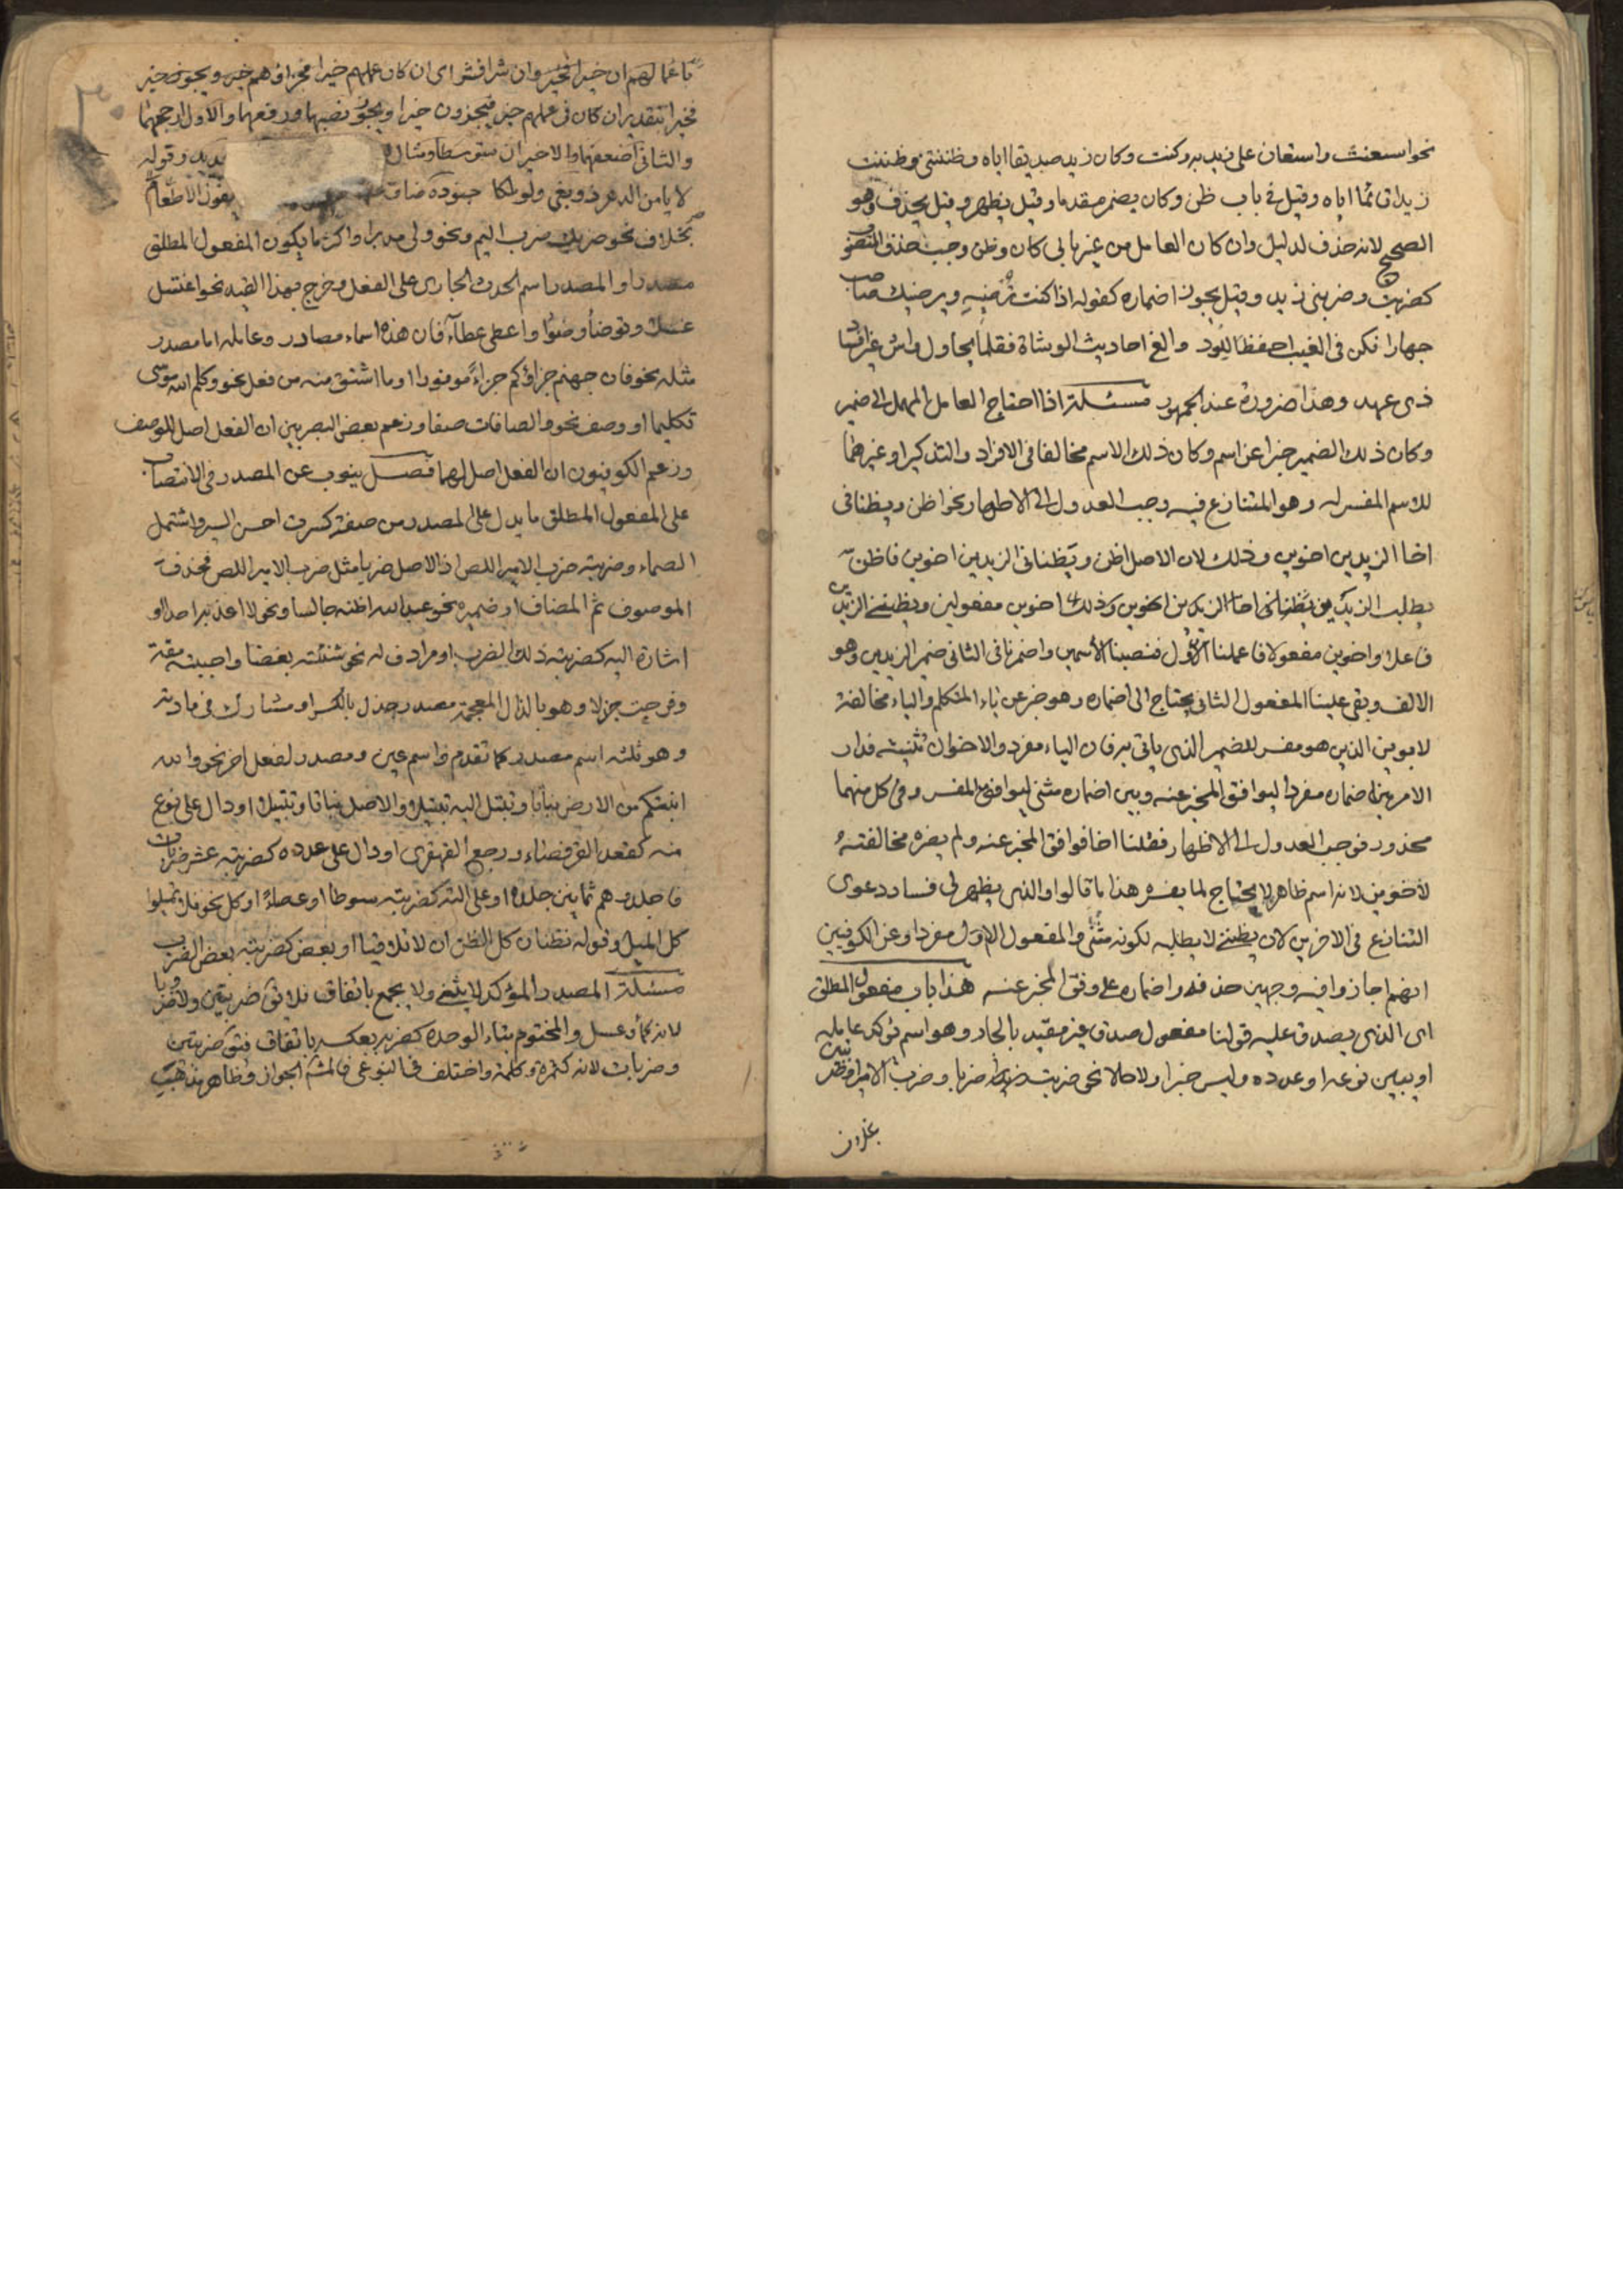 نحو استعنت واستعان على زيد به وكنت وكان زيد صديقا اياه وظننتى وظننت
زيدا قائما اياه وقيل فى باب ظن وكان يضمر مقدما وقيل يظهر وقيل يحذف وهو
الصحيح لانه حذف لدليل وان كان العامل من غير بابى كان وظن وجب حذف المنصوب
كضربت وضربنى زيد وقيل يجوز اضماره كقوله اذا كنت ترضيه ويرضيك صاحب
جهارا فكن فى الغيب احفظ للود والغ احاديث الوشاة فقلما يحاول واش غير افساد
ذى عهد وهذا ضرورة عند الجمهور مسئلة اذا احتاج العامل المهمل الى ضمير
وكان ذلك الضمير خبرا عن اسم وكان ذلك الاسم مخالفا فى الافراد والتذكير او غيرهما
للاسم المفسر له وهو المتنازع فيه وجب العدول الى الاظهار نحو اظن ويظنانى
اخا الزيدين اخوين وذلك لان الاصل اظن ويظنانى الزيدين اخوين فاظن
يطلب الزيدين اخوين مفعولين ويظننى الزيدين
فاعلا واخوين مفعولا فاعملنا الاول فنصبنا الاسمين واضمرنا فى الثانى ضمير الزيدين وهو
الالف وبقى علينا المفعول الثانى يحتاج الى اضماره وهو خبر عن ياء المتكلم والياء مخالفة
لاخوين الذين هو مفسر للضمير الذى ياتى به فان الياء مفرد والاخوان تثنية فدار
الامر بين اضماره مفردا ليوافق المخبر عنه وبين اضماره مثنى ليوافق المفسر وفى كل منهما
محذور فوجب العدول الى الاظهار فقلنا اخا فوافق المخبر عنه ولم يضره مخالفته
لاخوين لانه اسم ظاهر لا يحتاج لما يفسره هذا ما قالوا والذى يظهر لى فساد دعوى
التنازع فى الاخرين لان يظننى لا يطلبه لكونه مثنى والمفعول الاول مفرد او عن الكوفيين
انهم اجازوا فيه وجهين حذفه واضماره على وفق المخبر عنه هذا باب مفعول المطلق
اى الذى يصدق عليه قولنا مفعول صدقا غير مقيد بالجار وهو اسم يؤكد عامله
او يبين نوعه او عدده وليس خبرا ولا حالا نحو ضربت ضربا وضرب الامير او ضربتين
باعمالهم ان خيرا فخير وان شرا فشر اى ان كان عملهم خيرا فجزاؤهم خير ويجوز خير
فخيرا بتقدير ان كان فى عملهم خير فيجزون خيرا ويجوز نصبهما ورفعهما والاول ارجحهما
والثانى اضعفهما والاخيران متوسطا ومثال
لا يامن الدهر ذو بغى ولو ملكا جنوده ضاق
بخلاف نحو ضربك ضرب اليم ونحو ولى مدبرا واكثر ما يكون المفعول المطلق
مصدرا والمصدر اسم الحدث الجارى على الفعل وخرج بهذا القيد نحو اغتسل
غسلا وتوضأ وضوءا واعطى عطاء فان هذه اسماء مصادر وعامله اما مصدر
مثله نحو فان جهنم جزاؤكم جزاء موفورا او ما اشتق منه من فعل نحو وكلم الله موسى
تكليما او وصف نحو والصافات صفا وزعم بعض البصريين ان الفعل اصل للوصف
وزعم الكوفيون ان الفعل اصل لهما فصل ينوب عن المصدر فى الانتصاب
على المفعول المطلق ما يدل على المصدر من صفة كسرت احسن السير واشتمل
الصماء وضربته ضرب الامير اللص اذ الاصل ضربا مثل ضرب الامير اللص فحذف
الموصوف ثم المضاف او ضميره نحو عبد الله اظنه جالسا ونحو لا اعذبه احدا او
اشارة اليه كضربته ذلك الضرب او مرادف له نحو شنئته بغضا واحببته مقة
وفرحت جذلا وهو بالذال المعجمة مصدر جذل بالكسر او مشارك فى مادته
وهو ثلثه اسم مصدر كما تقدم واسم عين ومصدر لفعل اخر نحو والله
انبتكم من الارض نباتا وتبتل اليه تبتيلا والاصل نباتا وتبتيلا او دال على نوع
منه كقعد القرفصاء ورجع القهقرى او دال على عدده كضربته عشر ضربات
فاجلدوهم ثمانين جلدة او على الته كضربته سوطا او عصا او كل نحو فلا تميلوا
كل الميل وقوله يظنان كل الظن ان لا تلاقيا او بعض كضربته بعض الضرب
مسئلة المصدر المؤكد لا يثنى ولا يجمع باتفاق فلا يق ضربتين ولا ضروبا
لانه كماء وعسل والمختوم بتاء الوحدة كضربة بعكسه باتفاق فيق ضربتين
وضربات لانه كتمرة وكلمة واختلف فى النوعى فالمشهور الجواز وظاهر مذهب